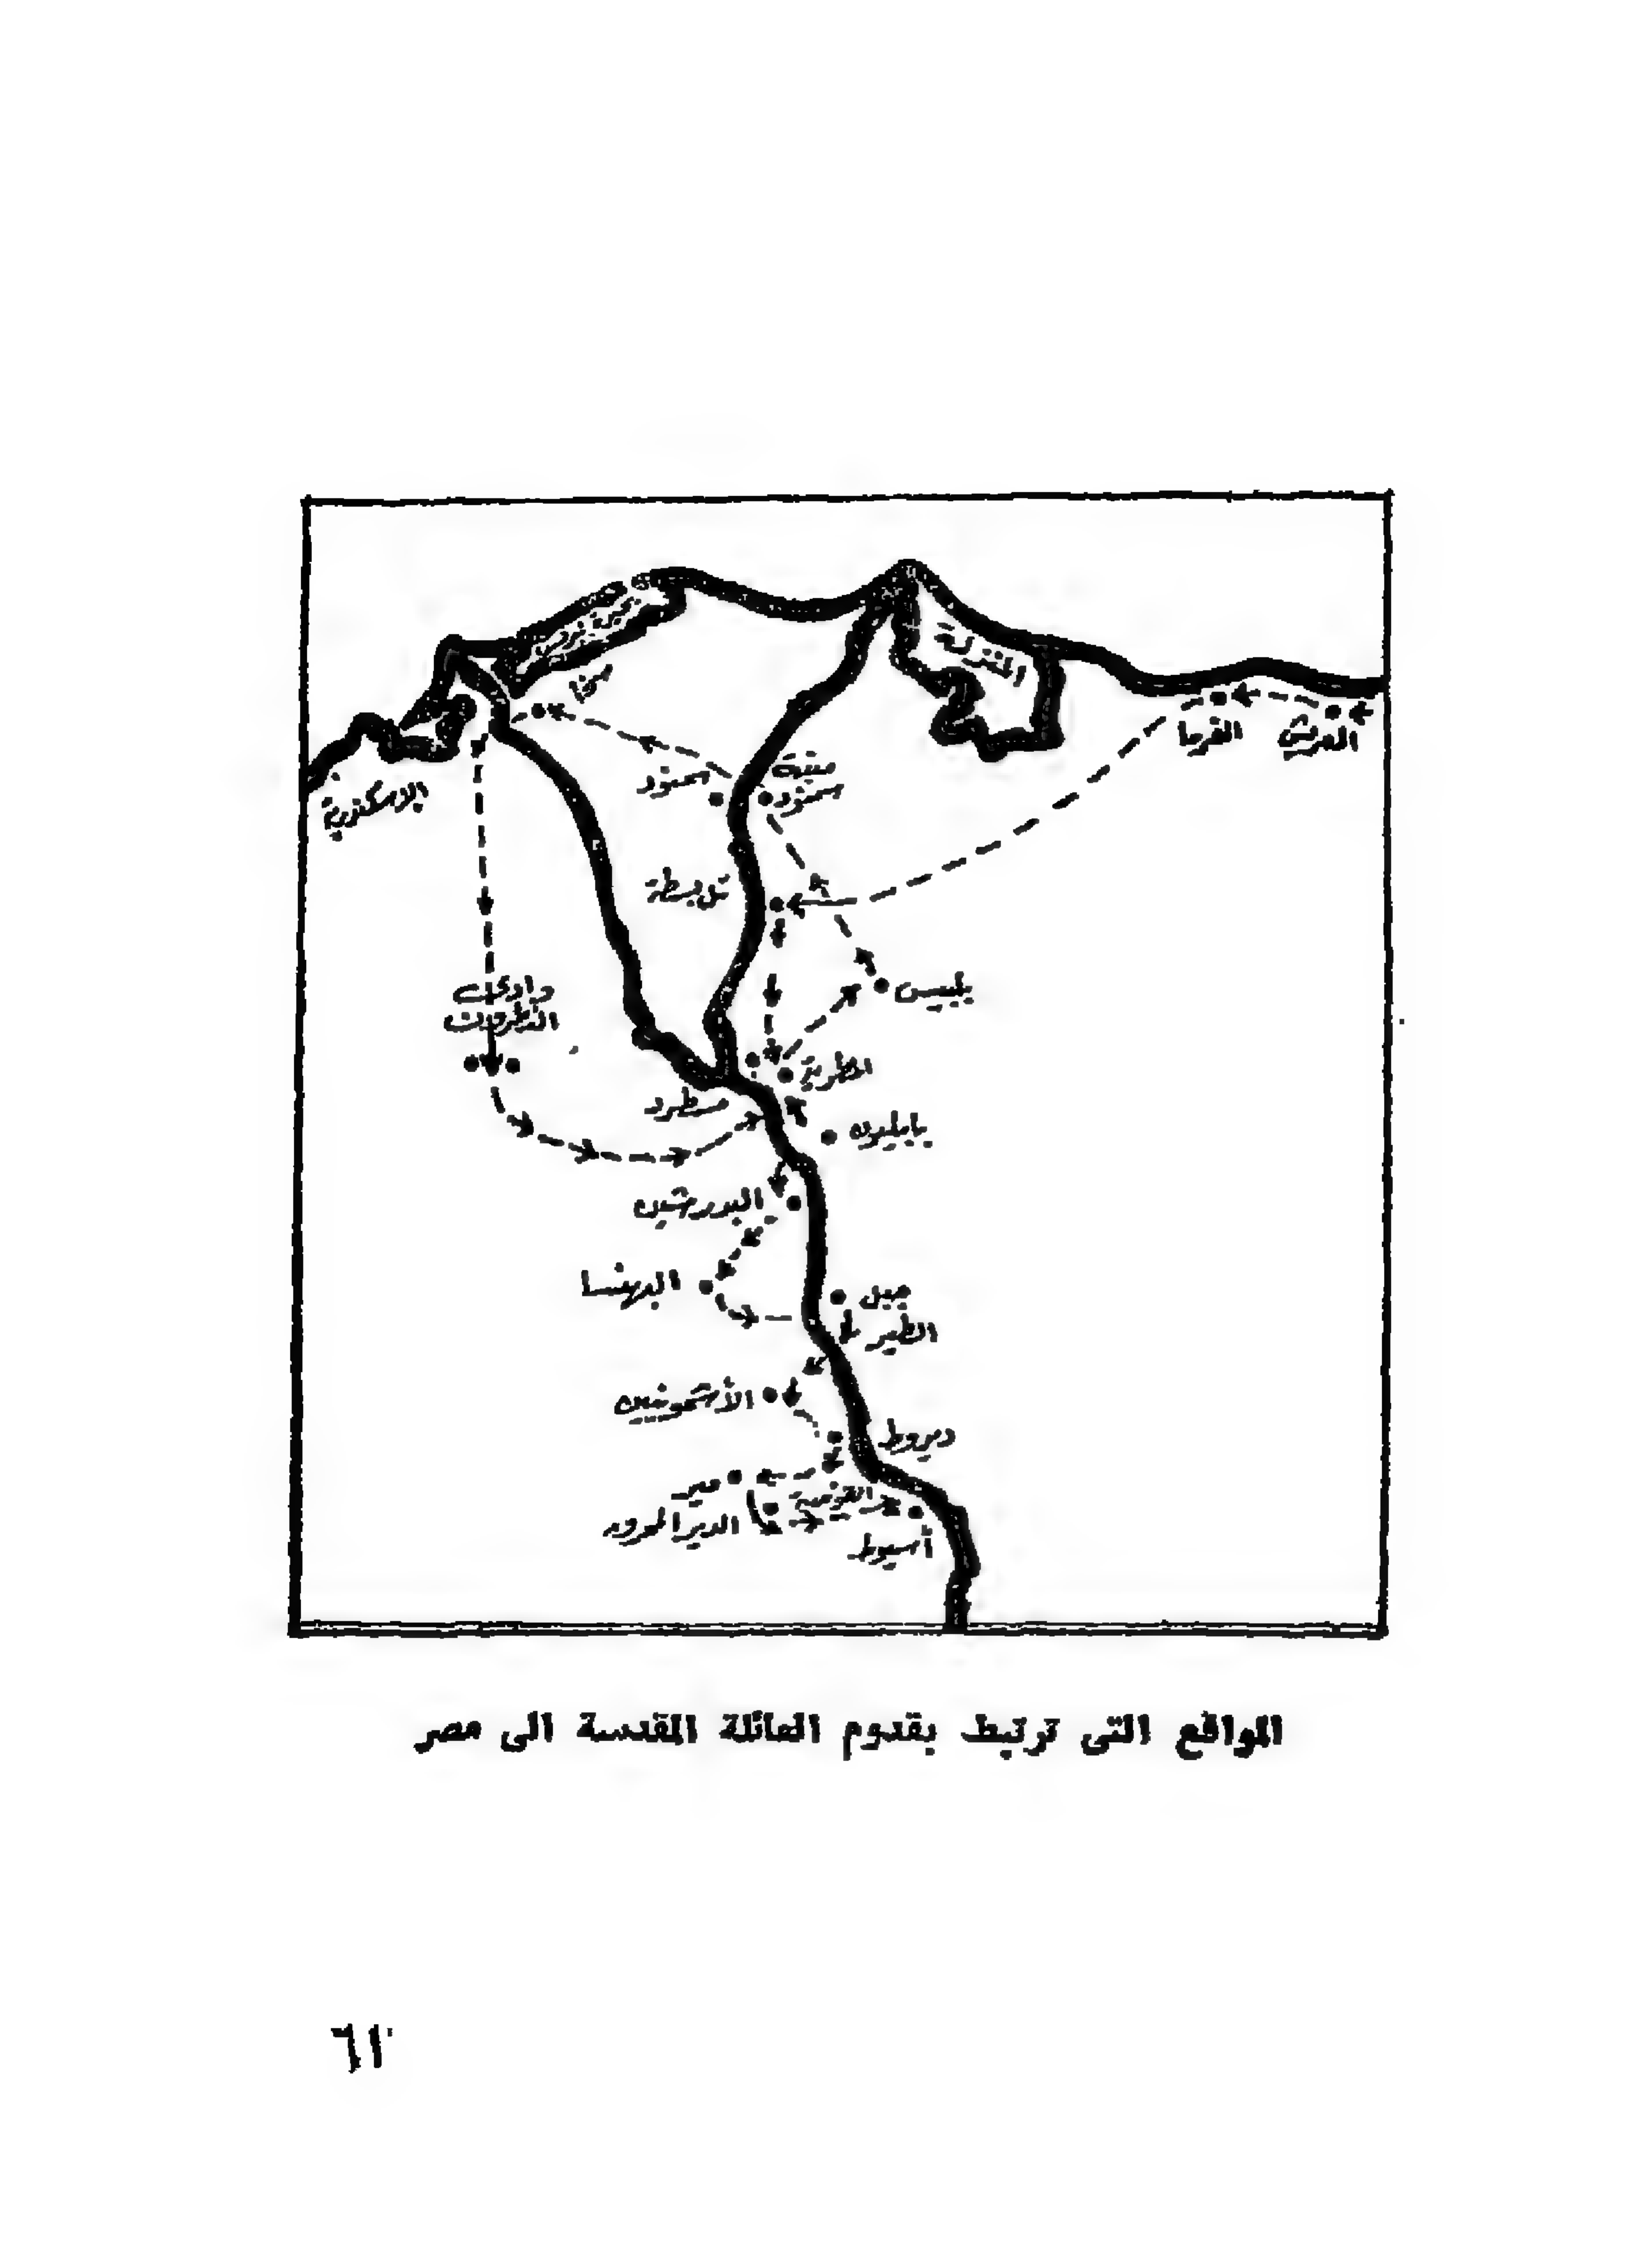 بحيرة البرلس
المنزلة
سخا
الفرما
العريش
الاسكندرية
سمنود
منية
سمنود
تل بسطة
بلبيس
وادى
النطرون
المطرية
مسطرد
بابليون
البدرشين
البهنسا
جبل
الطير
الأشمونين
ديروط
مير
القوصية
الدير المحرق
أسيوط
المواقع التى ترتبط بقدوم العائلة المقدسة الى مصر
٦١